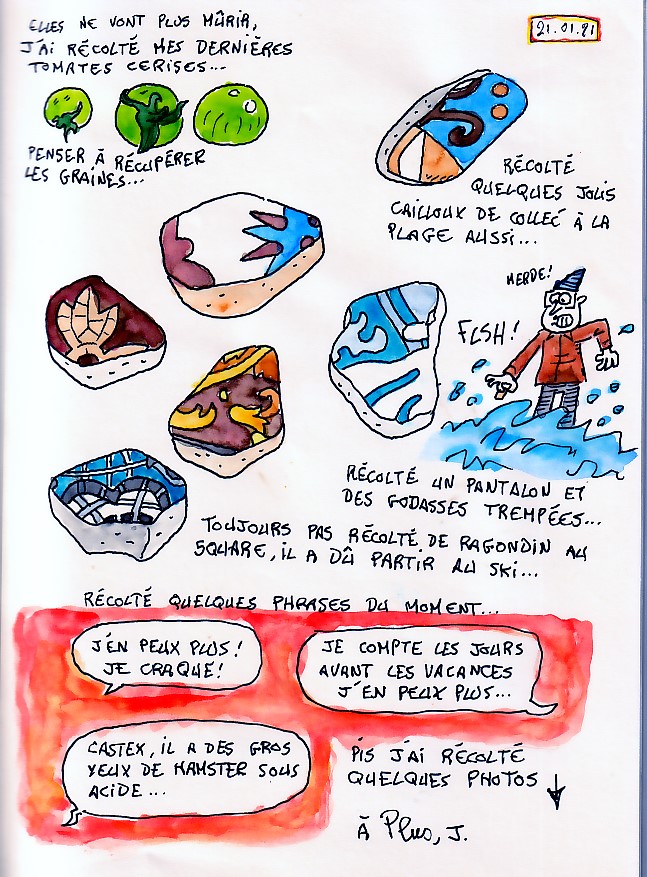 21.01.21
ELLES NE VONT PLUS MÛRIR,
J'AI RÉCOLTÉ MES DERNIÈRES
TOMATES CERISES...
PENSER À RÉCUPÉRER
LES GRAINES...
RÉCOLTÉ
QUELQUES JOLIS
CAILLOUX DE COLLEC À LA
PLAGE AUSSI...
MERDE!
FLSH!
RÉCOLTÉ UN PANTALON ET
DES GODASSES TREMPÉES...
TOUJOURS PAS RÉCOLTÉ DE RAGONDIN AU
SQUARE, IL A DÛ PARTIR AU SKI...
RÉCOLTÉ QUELQUES PHRASES DU MOMENT...
J'EN PEUX PLUS!
JE CRAQUE!
JE COMPTE LES JOURS
AVANT LES VACANCES
J'EN PEUX PLUS...
CASTEX, IL A DES GROS
YEUX DE HAMSTER SOUS
ACIDE...
PIS J'AI RÉCOLTÉ
QUELQUES PHOTOS
À Plus, J.